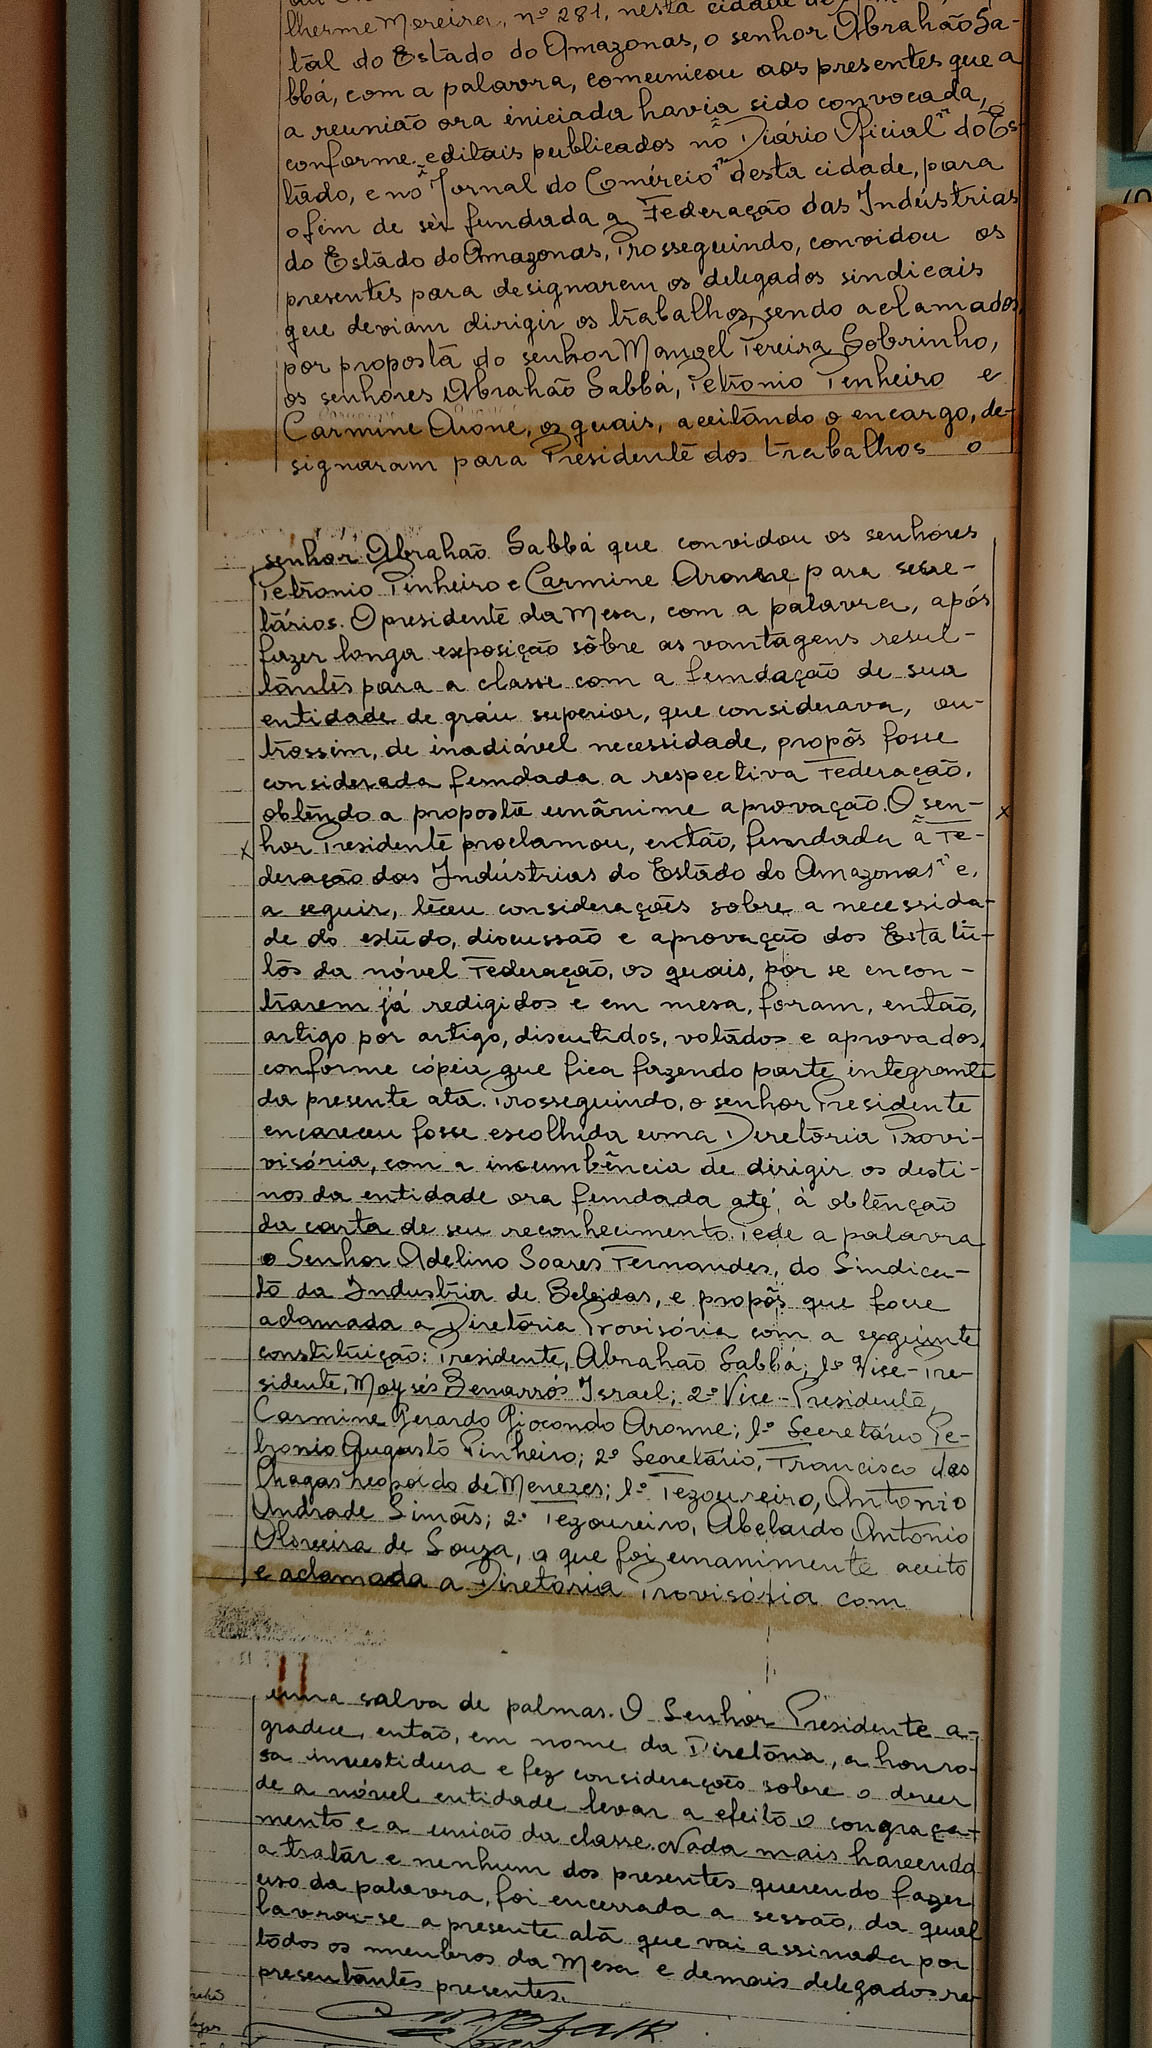 lherme Moreira, nº 281, nesta cidade de
tal do Estado do Amazonas, o senhor Abrahão Sa-
bbá, com a palavra, comunicou aos presentes que a
a reunião ora iniciada havia sido convocada,
conforme editais publicados no "Diário Oficial" do Es-
tado, e no "Jornal do Comércio" desta cidade, para
o fim de sér fundada a Federação das Indústrias
do Estado do Amazonas, Prosseguindo, convidou os
presentes para designarem os delegados sindicais
que deviam dirigir os trabalhos, sendo aclamados,
por proposta do senhor Manoel Pereira Sobrinho,
os senhores Abrahão Sabbá, Petronio Pinheiro e
Carmine Arone, os quais, aceitando o encargo, de-
signaram para Presidente dos trabalhos o
senhor Abrahão Sabbá que convidou os senhores
Petronio Pinheiro e Carmine Aronne para secre-
tários. O presidente da Mesa, com a palavra, após
fazer longa exposição sôbre as vantagens resul-
tantes para a classe com a fundação de sua
entidade de gráu superior, que considerava, ou-
trossim, de inadiável necessidade, propôs fosse
considerada fundada a respectiva Federação,
obtendo a proposta unânime aprovação. O sen-
hor Presidente proclamou, então, fundada a "Fe-
deração das Indústrias do Estado do Amazonas" e,
a seguir, teceu considerações sobre a necessida-
de do estudo, discussão e aprovação dos Estatu-
tos da nóvel Federação, os quais, por se encon-
trarem já redigidos e em mesa, foram, então,
artigo por artigo, discutidos, votados e aprovados,
conforme cópia que fica fazendo parte integrante
da presente ata. Prosseguindo, o senhor Presidente
encareceu fosse escolhida uma Diretoria Provi-
visória, com a incumbência de dirigir os desti-
nos da entidade ora fundada até á obtenção
da carta de seu reconhecimento. Pede a palavra
o Senhor Adelino Soares Fernandes, do Sindica-
to da Industria de Bebidas, e propôs que fosse
aclamada a Diretória Provisória com a seguinte
constituição: Presidente, Abrahão Sabbá; 1º Vice-Pre-
sidente, Moysés Benarrós Israel; 2º Vice-Presidente,
Carmine Gerardo Giocondo Aronne; 1º Secretário Pe-
tronio Augusto Pinheiro; 2º Secretário, Francisco das
Chagas Leopoldo de Menezes; 1º Tezoureiro, Antonio
Andrade Simões; 2º Tezoureiro, Abelardo Antonio
Oliveira de Souza, o que foi unanimimente aceito
e aclamada a Diretoria Provisória com
uma salva de palmas. O Senhor Presidente a-
gradece, então, em nome da Diretoria, a honro-
sa investidura e fez considerações sobre o dever
de a nóvel entidade levar a efeito o congraça-
mento e a união da classe. Nada mais havendo
a tratar e nenhum dos presentes querendo fazer
uso da palavra, foi encerrada a sessão, da qual
lavrou-se a presente ata que vai assinada por
todos os membros da Mesa e demais delegados re-
presentantes presentes.